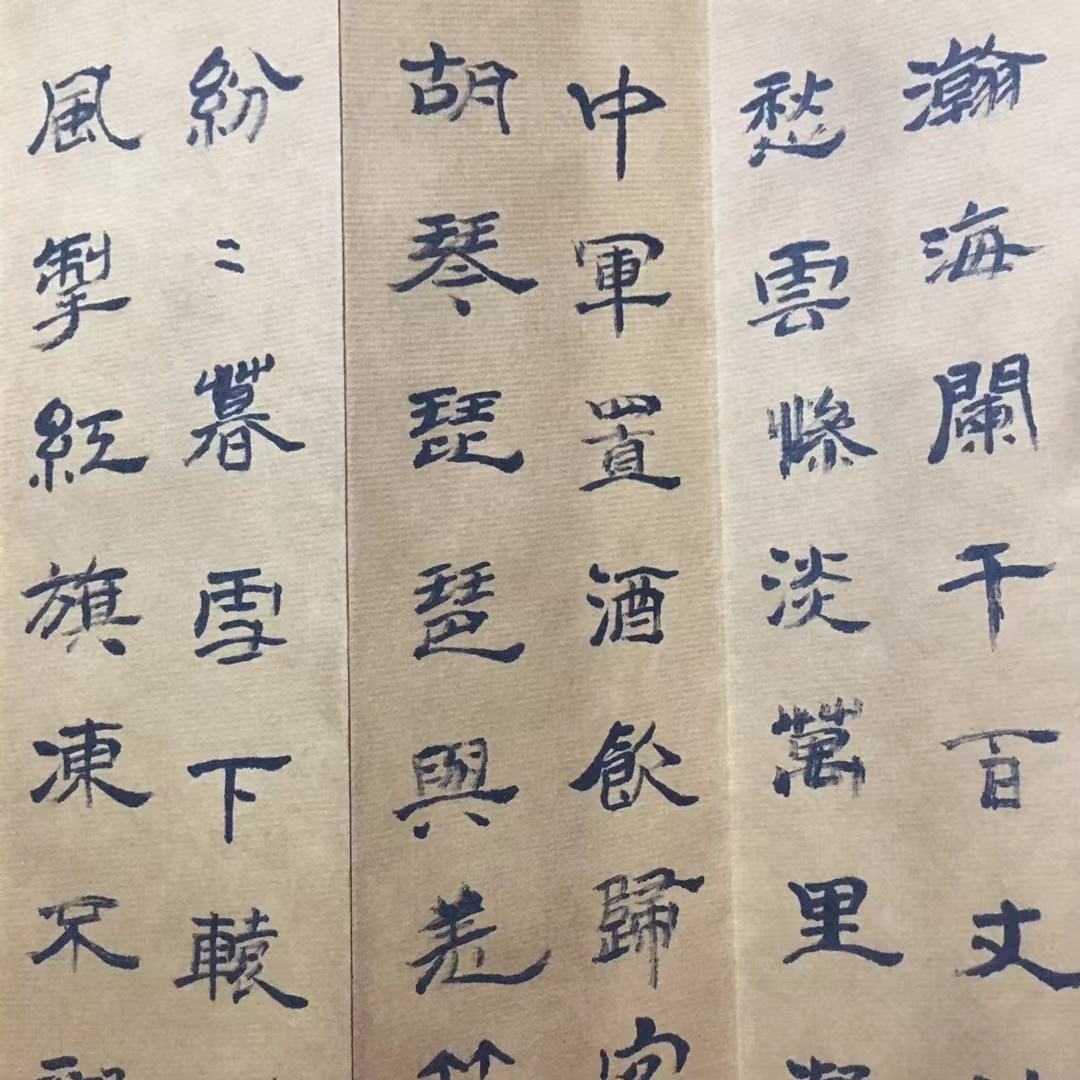 瀚海闌干百丈
愁雲慘淡萬里
中軍置酒飲歸客
胡琴琵琶與羌
紛〻暮雪下轅
風掣紅旗凍不